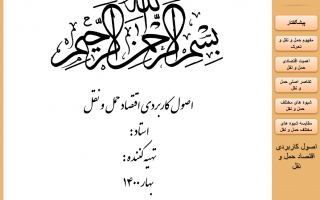 بسم الله الرحمن الرحیم
اصول کاربردی اقتصاد حمل و نقل
استاد :
تهیه کننده :
بهار ۱۴۰۰
پیشگفتار
مفهوم حمل و نقل و
تعرف
اهمیت اقتصادی
حمل و نقل
عناصر اصلی حمل
و نقل
شیوه های مختلف
حمل و نقل
مقایسه شیوه های
مختلف حمل و نقل
اصول کاربردی
اقتصاد حمل و
نقل